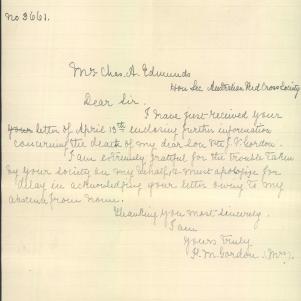 No 3661.
Mr Chas. A. Edmunds
Hon Sec Australian Red Cross Society
Dear Sir.
I have just received your
your letter of April 13th enclosing further information
concerning the death of my dear son Pte J. V. Gordon.
I am extremely grateful for the trouble taken
by your society on my behalf, & must apologise for
delay in acknowledging your letter owing to my
absence from home.
Thanking you most sincerely.
I am
Yours truly
M. Gordon (Mrs).